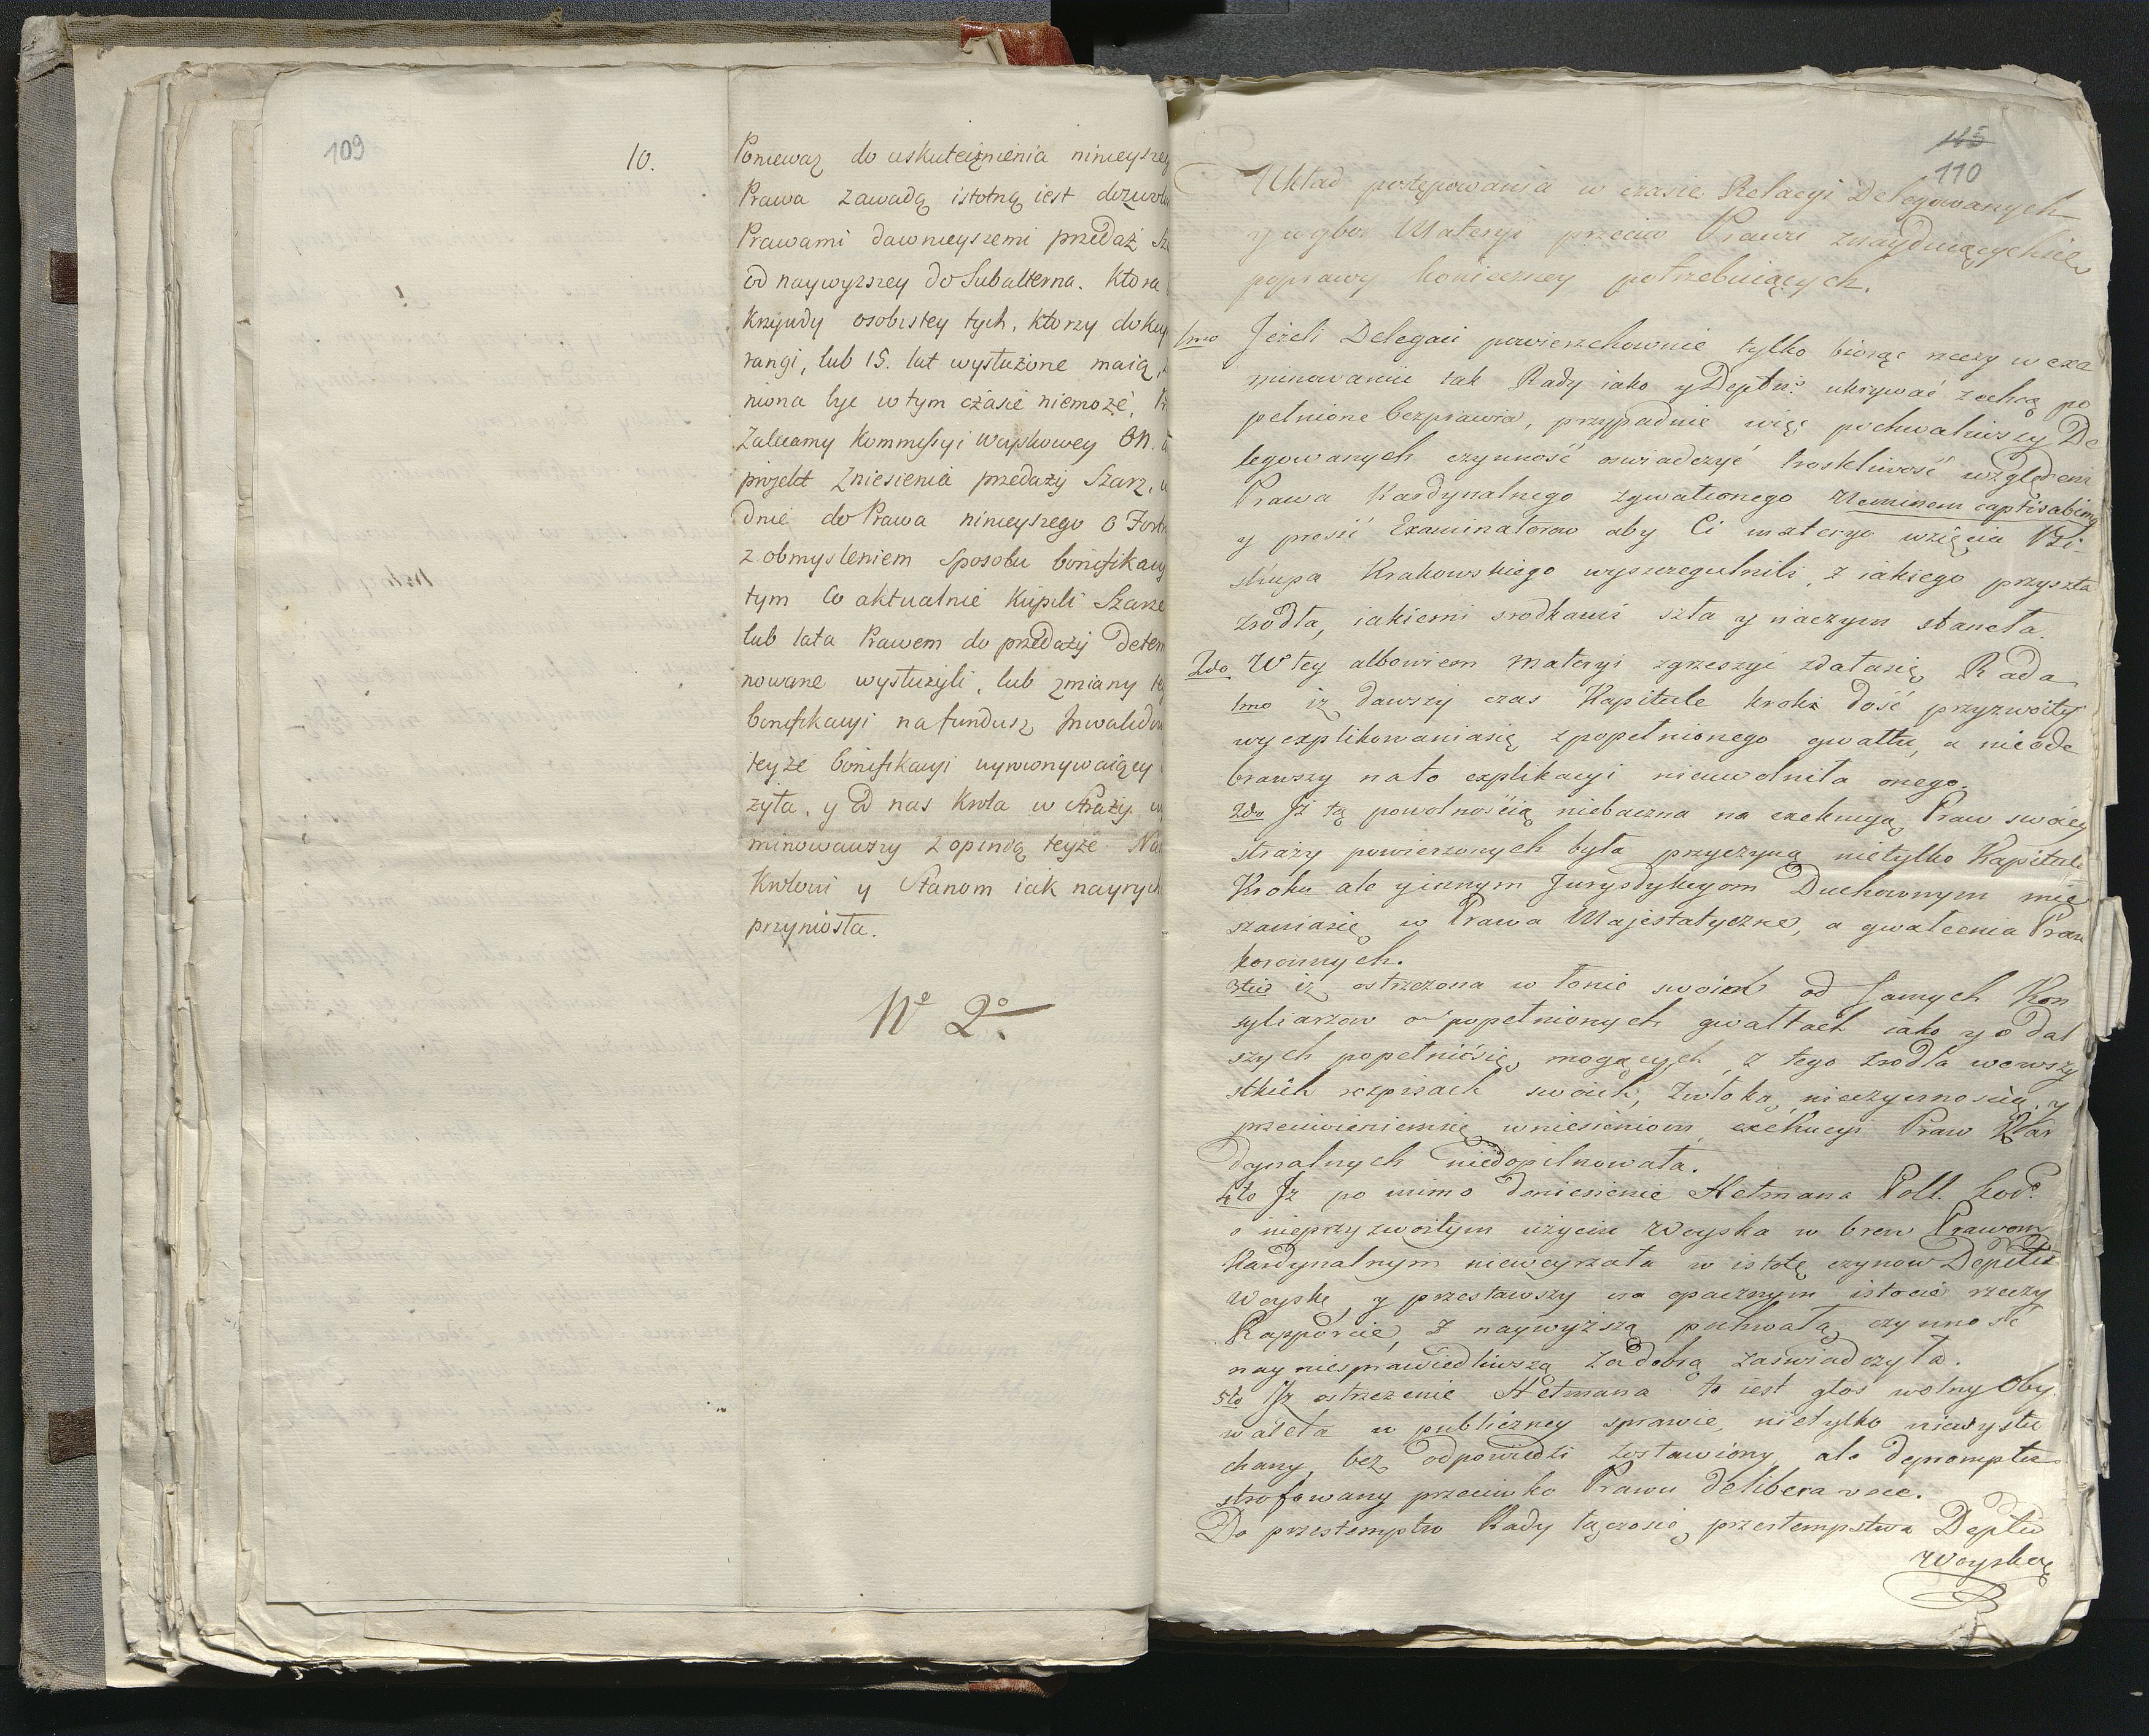 109
10.
Poniewaz do uskutecznienia ninieyszeg
Prawa zawadą istotną iest dozwolo
Prawami dawnieyszemi przedaż Sz
od naywyzszey do Subalterna. Ktora
krzywdy osobistey tych, ktorzy dokup
rangi, lub 15. lat wysłużone maią,
niona byc w tym czásie niemoże,
Zalecamy Kommissyi Woyskowey ON.
projekt Zniesienia przedaży Szarz,
dnie do Prawa ninieyszego o
z obmysleniem Sposobu bonifikacy
tym Co aktualnie Kupili Szarze
lub lata Prawem do przedaży Determ
nowane wysłużyli, lub zmiany tey
bonifikacyi na fundusz Inwalidow
teyże bonifikacyi wyrownywaiący
żyła, y od nas Krola w Straży
minowawszy z opinią teyże Na
Krolowi y Stanom iak nayrych
przyniosła.
Nº 2º.
115
110
Układ postępowania w czasie Relacyi Delegowanych
y wybor Materyi przeciw Prawu znayduiącychsię
poprawy konieczney potrzebuiących.
1mo Jeżeli Delegaci powierzchownie tylko biorąc rzeczy w exa
minowaniu tak Rady iako y Deptu: ukrywać zechcą po
pełnione bezprawia, przypadnie więc pochwaliwszy De
legowanych czynność oswiadczyć troskliwość względem
Prawa Kardynalnego zgwałconego Neminem captivabimus
y prosić Examinatorow aby Ci materyę wzięcia Bi-
skupa Krakowskiego wyszczegulnili, z iakiego przyszła
zrodła, iakiemi srodkami szła y naczym stanęła.
2do W tey albowiem materyi zgrzeszyć zdałasię Rada
1mo iż dawszy czas Kapitule kroku dość przyzwoity
wyexplikowaniasię z popełnionego gwałtu, a nieode
brawszy na to explikacyi nieuwolniła onego.
2do Jż tą powolnością niebaczna na exekucyą Praw swoiey
straży powierzonych była przyczyną nietylko Kapitule
Kroku ale y innym Jurysdykcyom Duchownym mie
szaniasię w Prawa Majestatyczne, a gwałcenia Praw
koronnych.
3tio iż ostrzeżona w łonie swoim od samych Kon
syliarzow o popełnionych gwałtach iako y o dal
szych popełnićsię mogących, z tego zrodła wewszy
stkich rozpisach swoich, zwłoką, nieczynnością, y
przeciwieniemsię wniesieniom exekucyi Praw Kar
dynalnych niedopilnowała.
4to Jż po mimo doniesienie Hetmana Poll. Kor:
o nieprzyzwoitym użyciu Woyska w brew Prawom
Kardynalnym nieweyrzała w istotę czynow Deptu
Woyskę, y przestawszy na opacznym istocie rzeczy
Rapporcie, z naywyższą pochwałą czynność
nayniesprawiedliwszą za dobrą zaświadczyła.
5to Jż ostrzeżenie Hetmana to iest głos wolny Oby
watela w publiczney sprawie, nietylko niewysłu
chany, bez odpowiedzi zostawiony, ale deprompta
strofowany przeciwko Prawu deliberavoce.
Do przestempstw Rady łącząsię przestempstwa Deptu
Woyskę